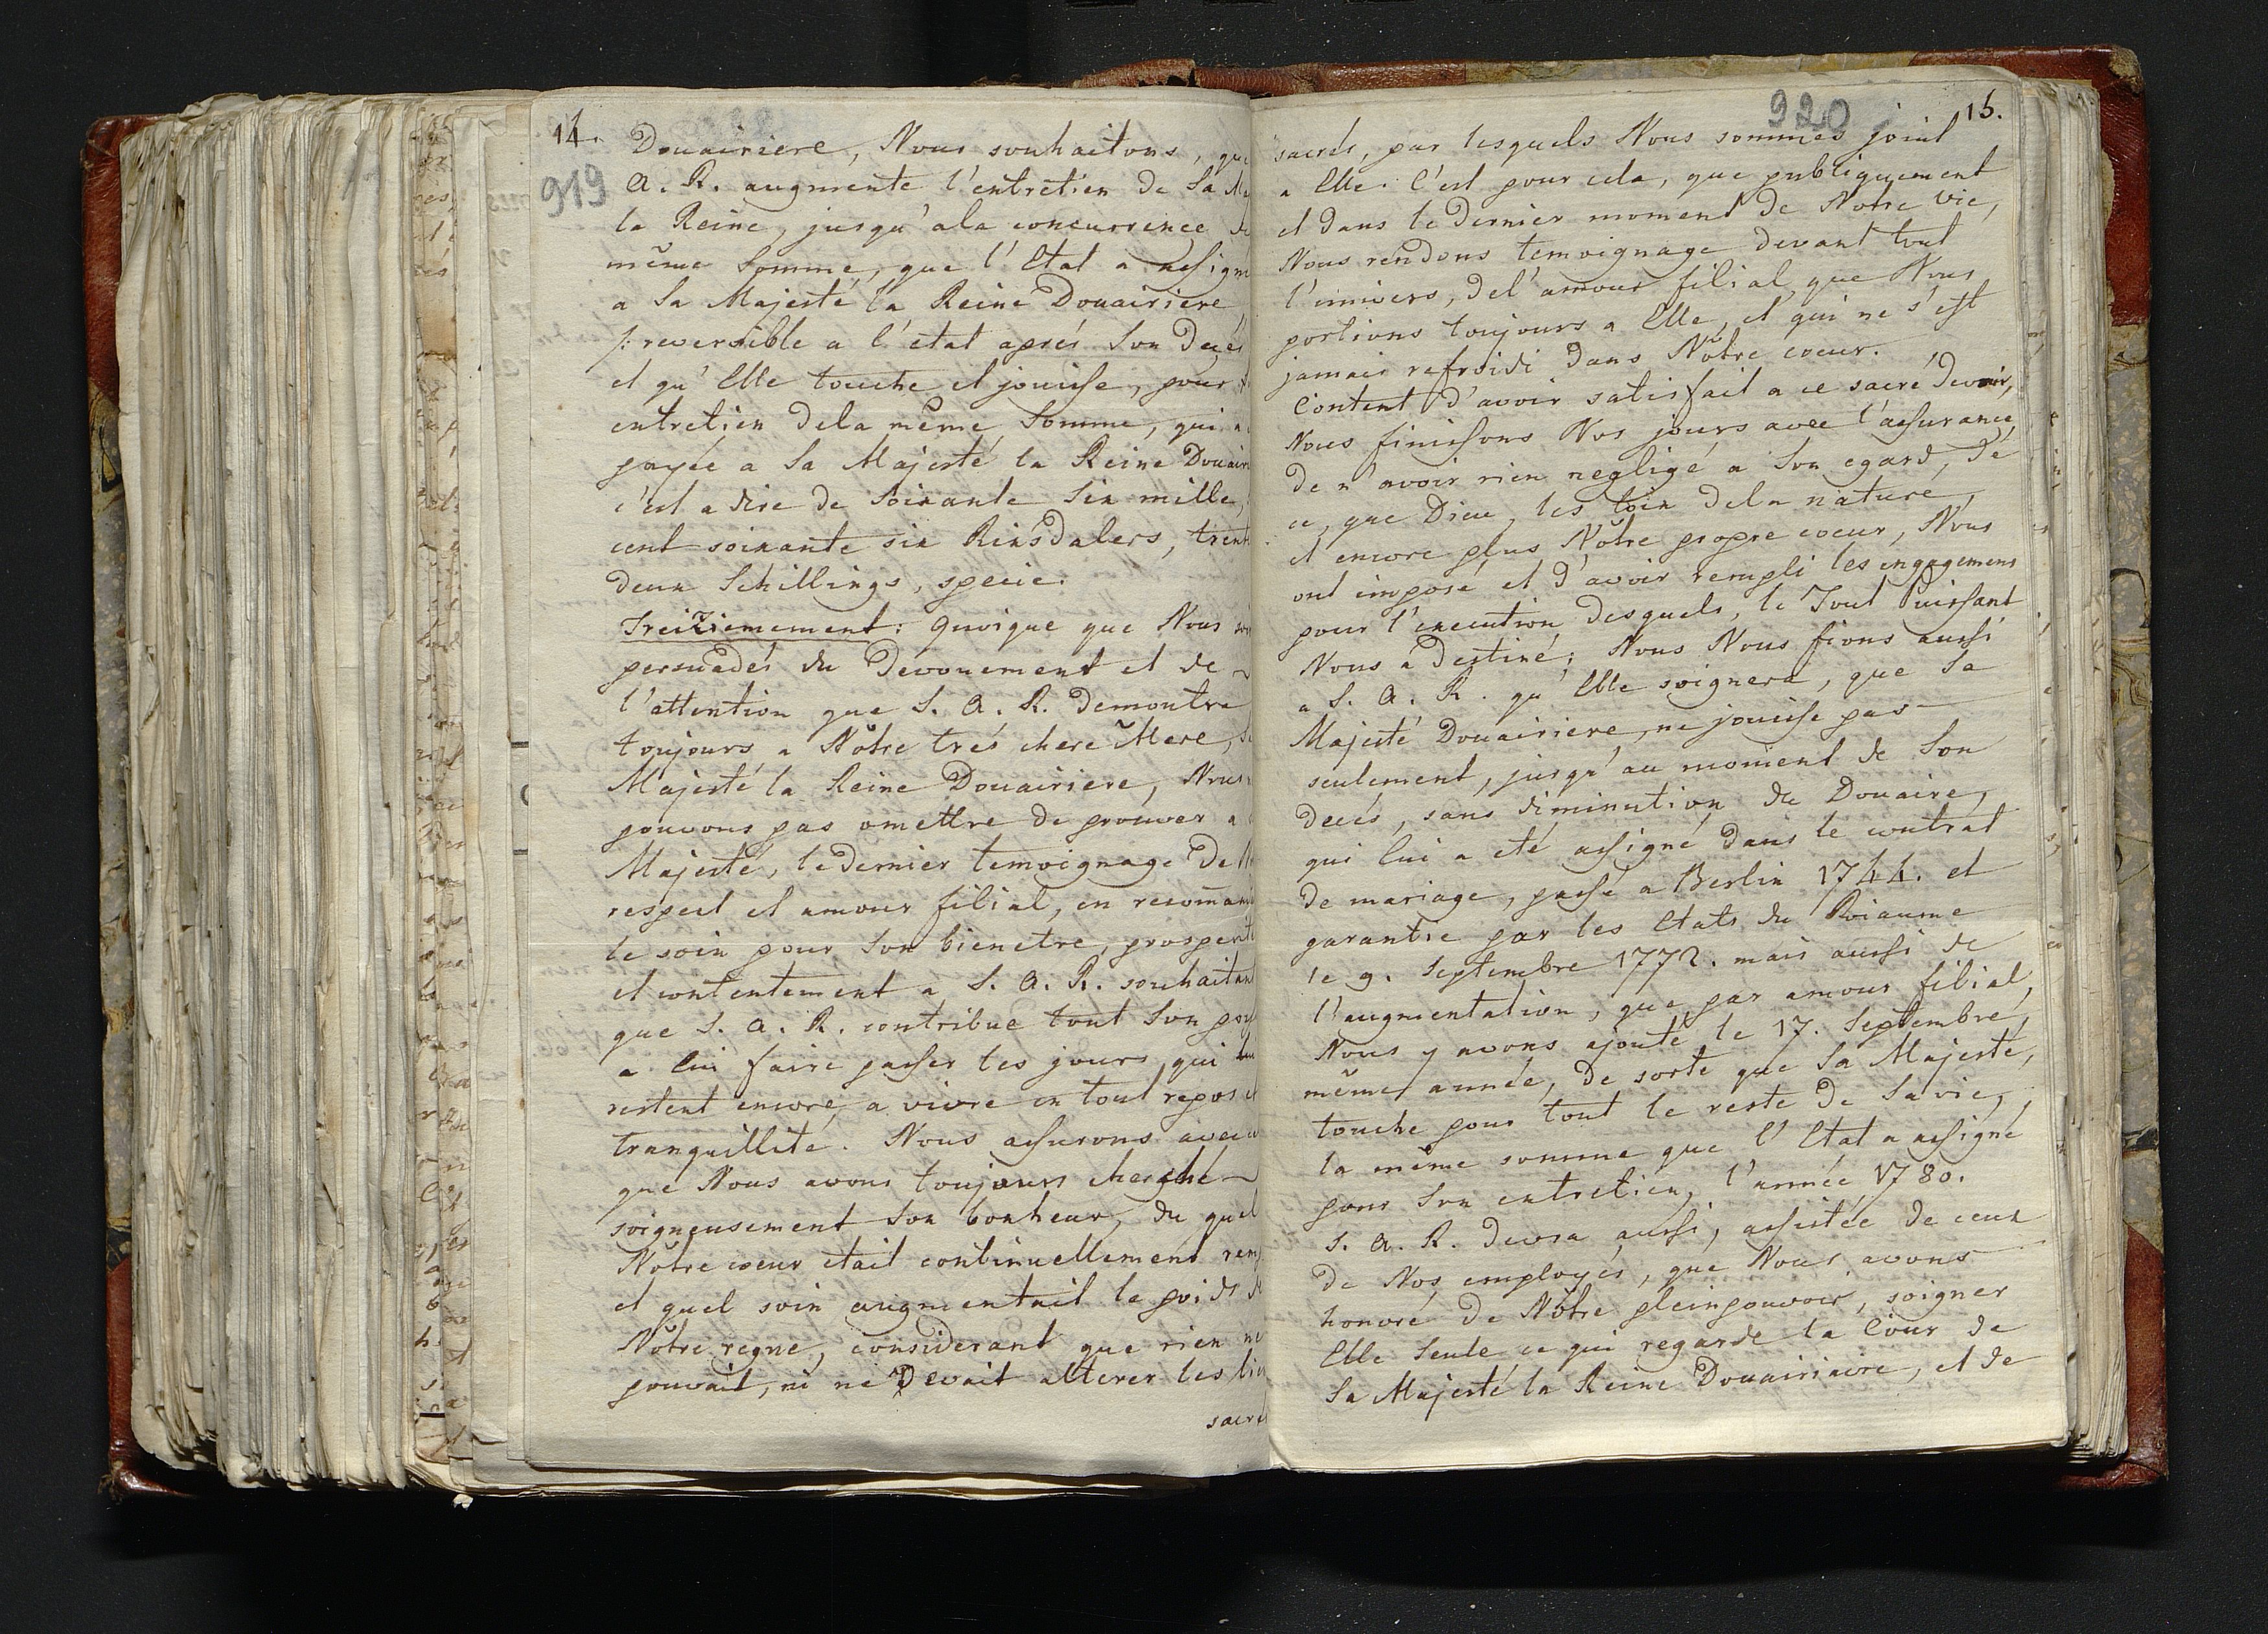 14.
919
Douairiere, Nous souhaitons, que
A. R. augmente l'entretien de Sa
la Reine, jusqu'ala concurrence
même Somme, que l'Etat a assigné
a Sa Majesté la Reine Douairiere
/: reversible a l'etat aprés Son Decés
et qu'Elle touche et jouisse, pour
entretien dela même Somme, qui
payée a Sa Majesté la Reine
c'est a dire de Soixante Six mille,
cent soixante six Rixsdalers,
deux Schillings, specie.
Treiziemement: Quoique que Nous
persuadés du Devouement et de
l'attention que S. A. R. demontre
toujours a Nôtre trés chere Mere,
Majesté la Reine Douairiere, Nous
pouvons pas omettre de prouver a
Majesté, le dernier temoignage de
respect et amour filial, en
le soin pour Son bienetre, prosperité
et contentement a S. A. R. souhaitant
que S. A. R. contribue tout Son
a Lui faire passer les jours qui
restent encore, a vivre en tout repos et
tranquillité. Nous assurons
que Nous avons toujours cherché
soigneusement Son bonheur, du quel
Nôtre coeur etait continuellement
et quel soin augmentait le poids
Nôtre regne, considerant que rien ne
pouvait, ni ne Devait alterer les
920
15.
sacrés, par lesquels Nous sommes joint
a Elle. C'est pour cela, que publiquement
et dans le Dernier moment de Notre vie,
Nous rendons temoignage devant tout
l'univers, del'amour filial que Nous
portions toujours a Elle, et qui ne s'est
jamais refroidi dans Nôtre coeur.
Content d'avoir satisfait a ce sacré devoir,
Nous finissons Nos jours avec l'assurance,
de n'avoir rien negligé a Son egard, de
ce, que Dieu, les loix dela nature,
et encore plus Nôtre propre coeur, Nous
ont imposé et d'avoir rempli les engagemens
pour l'execution desquels, le Tout Puissant
Nous a Destiné; Nous Nous fions aussi
a S. A. R. qu'Elle soignera, que Sa
Majesté Douairiere, ne jouisse pas
seulement, jusqu'au moment de Son
decés, sans diminution du Douaire,
qui Lui a eté assigné dans le contrat
de mariage, passé a Berlin 1744. et
garantie par les Etats du Roiaume
le 9. Septembre 1772. mais aussi de
l'augmentation, que par amour filial,
Nous y avons ajouté le 17. Septembre,
même année, de sorte que Sa Majesté,
touche pour tout le reste de Sa vie,
la même somme que l'Etat a assigné
pour Son entretien, l'année 1780.
S. A. R. devra aussi, assistée de ceux
de Nos employés, que Nous avons
honoré de Nôtre pleinpouvoir, soigner
Elle Seule ce qui regarde la Cour de
Sa Majesté la Reine Douairiaire, et de